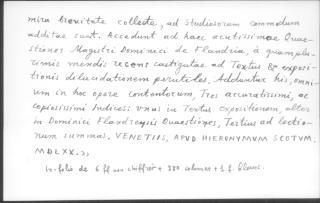 mira brevitate collecta, ad studiosorum commodum
additae sunt. Accedunt ad haec acutissimae Quae-
stiones Magistri Dominici de Flandria, à quamplu-
rimis mendis recens castigatae ad Textus & exposi-
tionis dilucidationem perutiles. Adduntur his, omni-
um in hoc opere contentorum, Tres accuratissimi, ac
copiosissimi Indices: vnus in Textus expositionem, alter
in Dominici Flandrensis Quaestiones, Tertius ad lectio-
num summas. VENETIIS, APUD HIERONYMUM SCOTUM.
MDLXX. »
in-folio de 6 ff non chiffrés + 380 colonnes + 1 f. blanc.